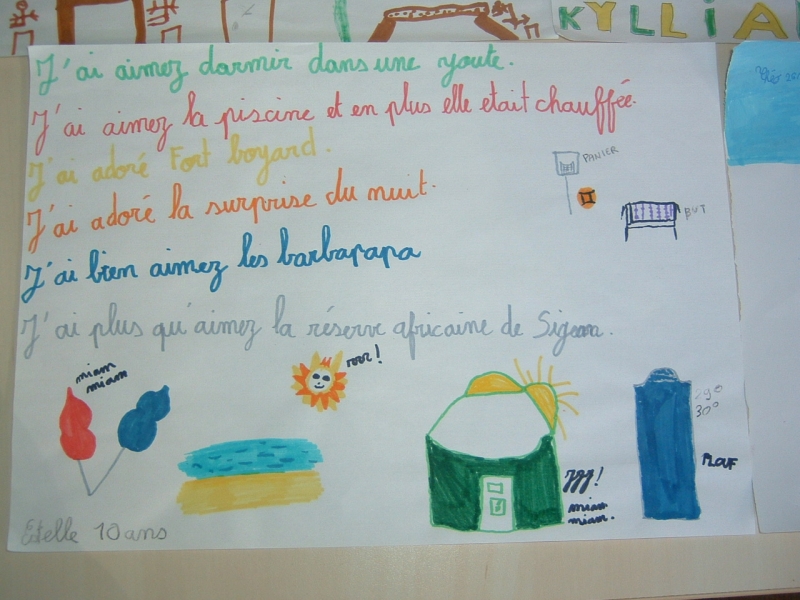 KYLLIA
J'ai aimez dormir dans une youte.
J'ai aimez la piscine et en plus elle etait chauffée.
J'ai adoré Fort boyard.
J'ai adoré la surprise du nuit.
J'ai bien aimez les barbapapa
J'ai plus qu'aimez la réserve africaine de Sigean.
PANIER
BUT
miam
miam
rrrr!
29°
30°
PLOUF
JJJ!
miam
miam.
Estelle 10 ans